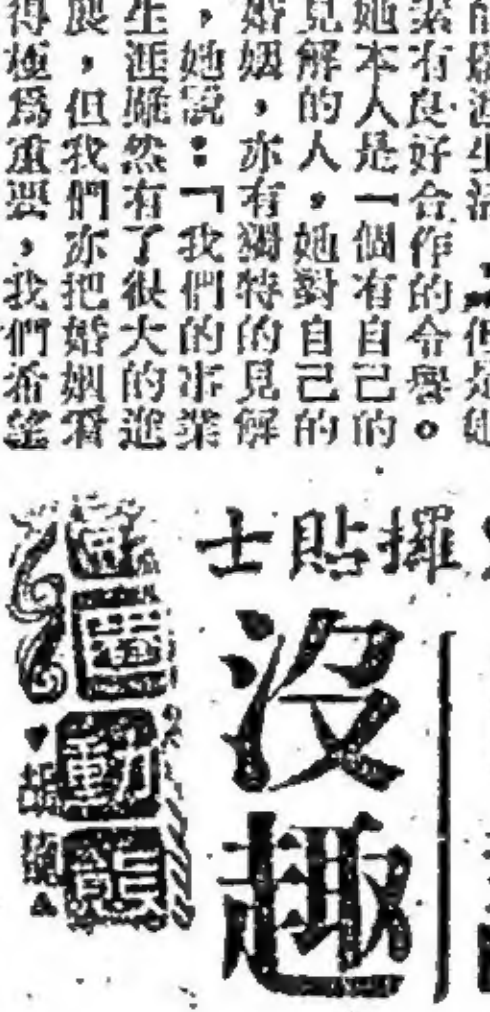 素有良好合作的令譽。
她本人是一個有自己的
見解的人，她對自己的
婚姻，亦有獨特的見解
，她說：「我們的事業
生涯雖然有了很大的進
展，但我們亦把婚姻看
得極為重要，我們希望
士貼攞
沒趣
動